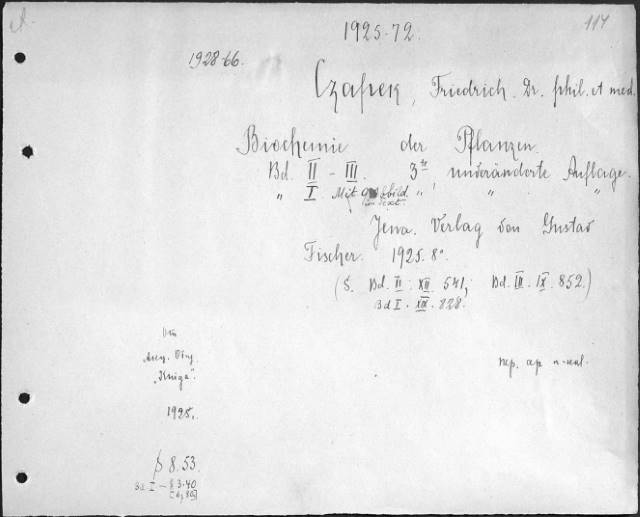 A.
117
1925-72.
1928-66.
Czapek, Friedrich. Dr. phil. et med.
Biochemie der Pflanzen.
Bd. II - III. 3te, unveränderte Auflage.
" I. Mit 9 Abbild. " " "
im Text.
Jena. Verlag von Gustav
Fischer. 1925. 8°.
(S. Bd. II. XII. 541; Bd. III. IX. 852.)
Bd I. XIX. 828.
"Kniga".
1925.
$ 8.53.
Bd. I - $ 3.40